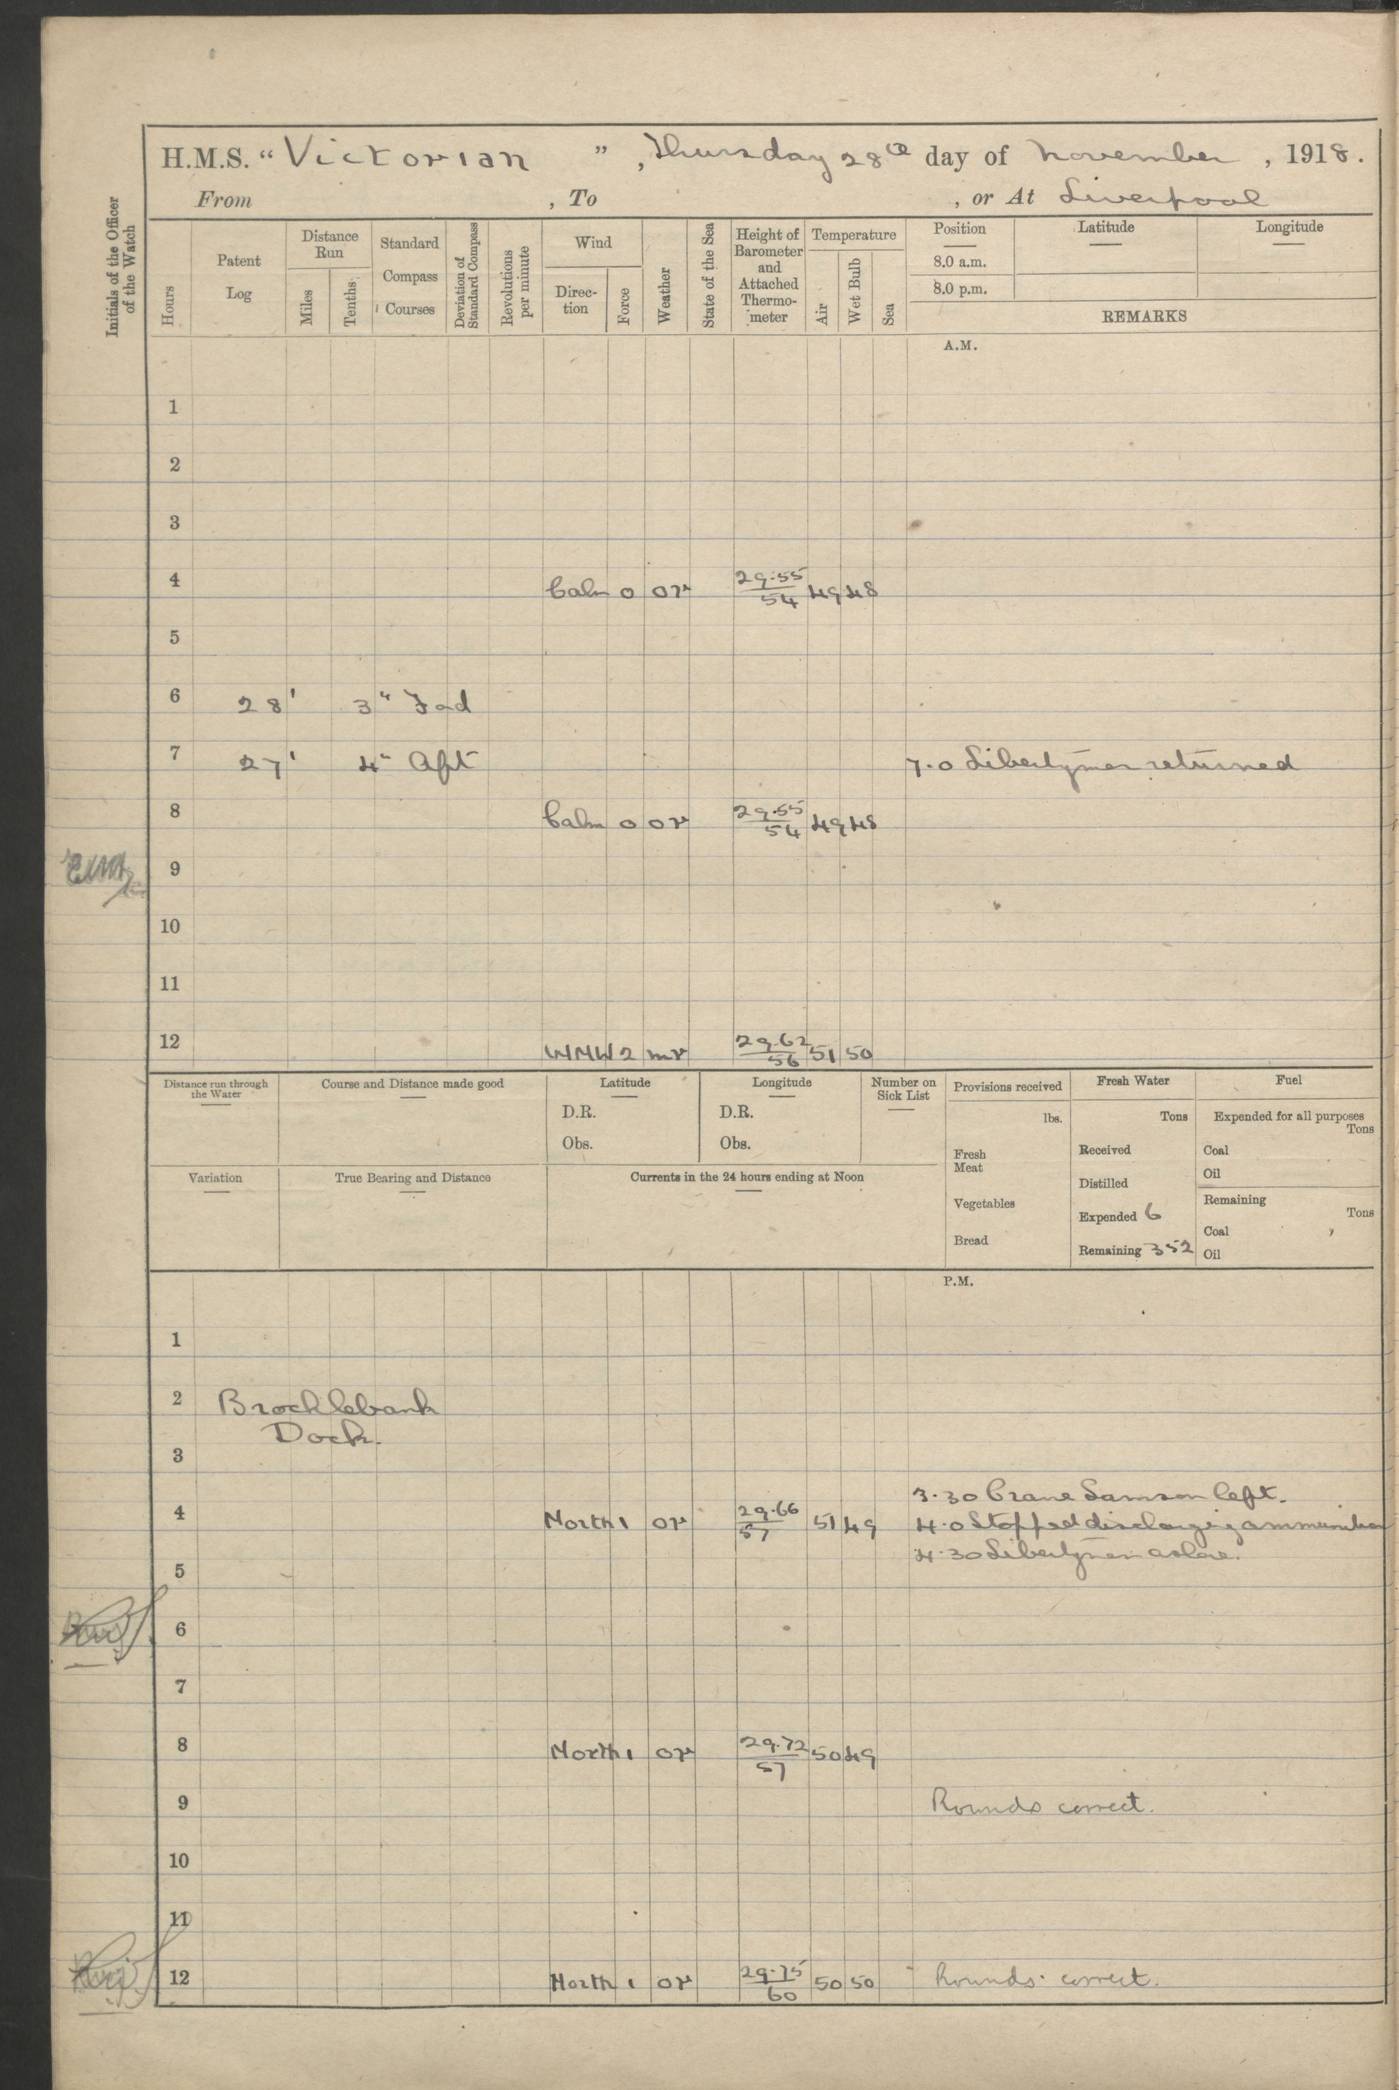 H.M.S. “Victorian ” , Thursday 28th day of November , 1918.
From , To , or At Liverpool
Initials of the Officer of the Watch
Hours
Patent Log
Distance Run
Miles
Tenths
Standard Compass Courses
Deviation of Standard Compass
Revolutions per minute
Wind
Direc-tion
Force
Weather
State of the Sea
Height of Barometer and Attached Thermo-meter
Temperature
Air
Wet Bulb
Sea
Position
8.0 a.m.
8.0 p.m.
Latitude
Longitude
REMARKS
A.M.
1
2
3
4 Calm 0 or 29.55/54 49 48
5
6 28' 3" Fad
7 27' 4" Aft 7.0 Libertymen returned
8 Calm 0 or 29.55/54 49 48
9
10
11
12 WNW 2 mr 29.62/56 51 50
Distance run through the Water
Course and Distance made good
Latitude
D.R.
Obs.
Longitude
D.R.
Obs.
Number on Sick List
Provisions received
lbs.
Fresh Meat
Vegetables
Bread
Fresh Water
Tons
Received
Distilled
Expended 6
Remaining 352
Fuel
Expended for all purposes
Tons
Coal
Oil
Remaining
Tons
Coal
Oil
Variation
True Bearing and Distance
Currents in the 24 hours ending at Noon
P.M.
1
2 Brocklebank
Dock.
3
3.30 Crane Samson left.
4 North 1 or 29.66/57 51 49 4.0 Stopped discharging ammunition
4.30 Libertymen ashore.
5
6
7
8 North 1 or 29.72/57 50 49
9 Rounds correct.
10
11
12 North 1 or 29.75/60 50 50 Rounds correct.